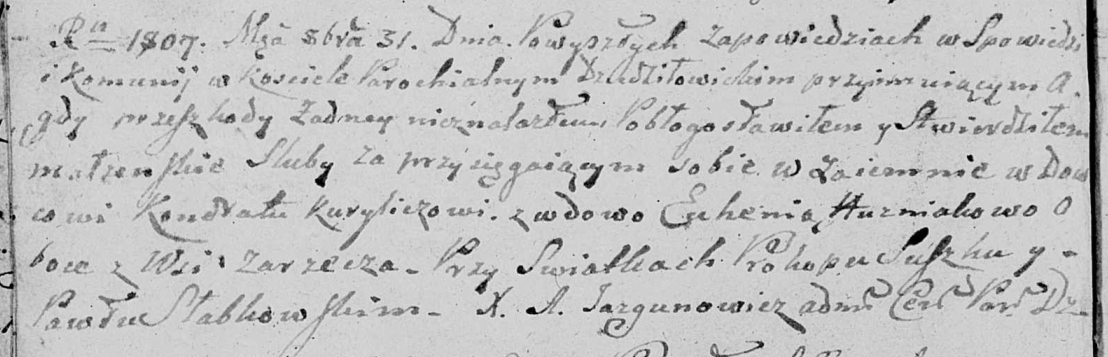 Rn 1807. Mca 8bra 31. Dnia. Powyszłych zapowiedziach w Spowiedzi
i Komunij w Kosciele Parochialnym Dzedziłowickim przyimuiącym A.
gdy przeszkody żadney nieznalazłem, Pobłogosławiłem y Stwierdziłem
małzenskie Sluby za przysięgaiącym sobie w zaiemnie w Dow
cowi Kondratu Kuryliczowi. z wdowo Euhenią Huzniakowo O
boie z Wsi Zarzecza. Przy Swiatkach Prokopu Suszku y -
Pawłu Słabkowskim - X. A. Jazgunowicz adm Cer Par Dz